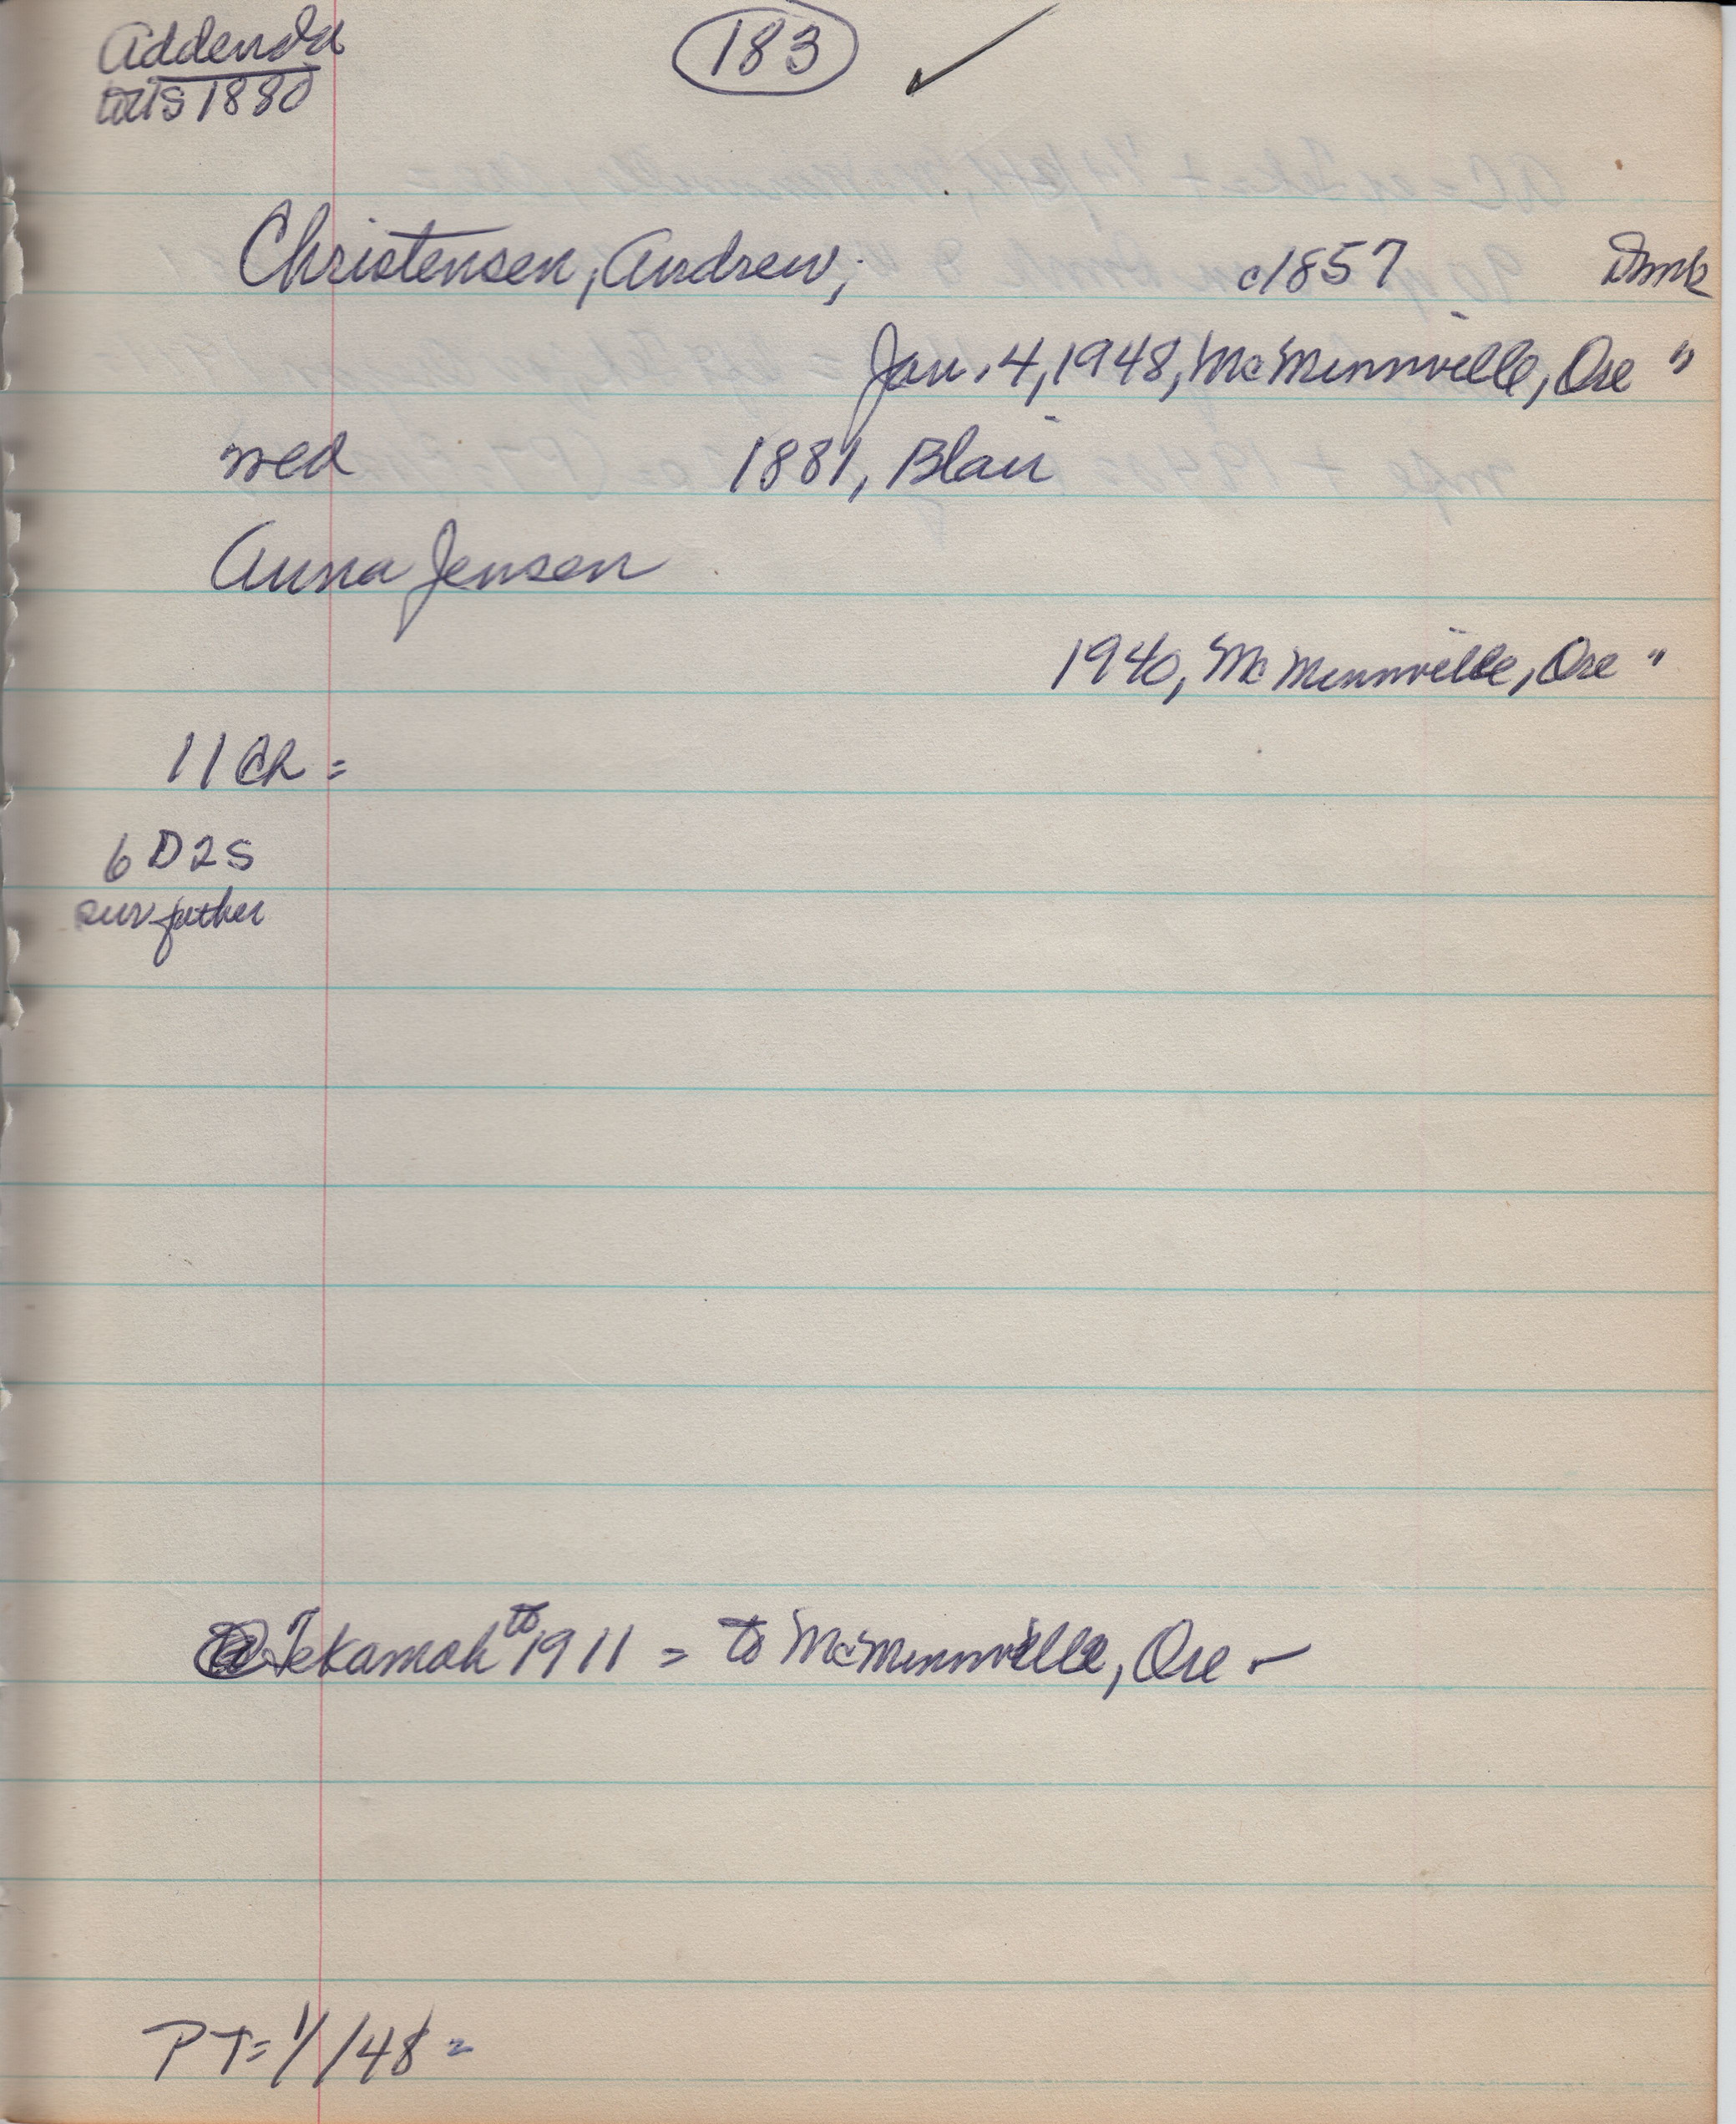 Addenda
183 ✓
1880
Christensen, Andrew; c1857 Dmk
Jan. 4, 1948, McMinnville, Ore "
wed 1881, Blair
Anna Jensen
1940, McMinnville, Ore "
11 Ch =
6 D 2 S
surv father
Tekamah to 1911 = to McMinnville, Ore -
PT = 1/ /48 =